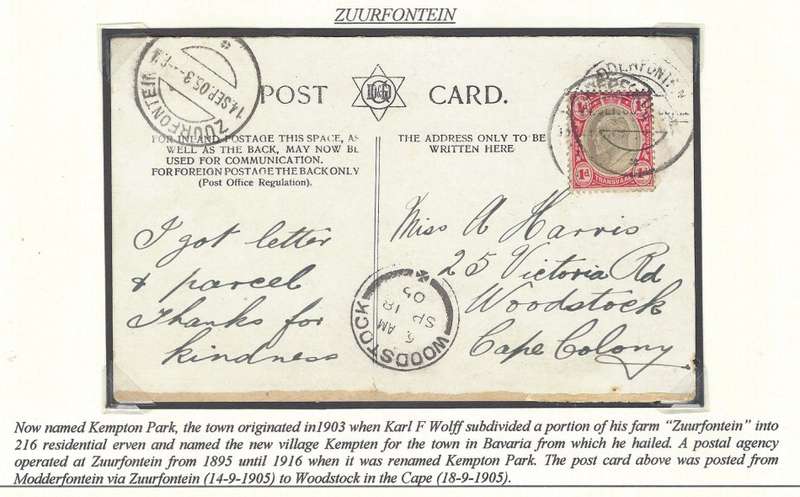 ZUURFONTEIN
ZUURFONTEIN
14 SEP 05.3
POST CARD.
FOR INLAND POSTAGE THIS SPACE, AS
WELL AS THE BACK, MAY NOW BE
USED FOR COMMUNICATION.
FOR FOREIGN POSTAGE THE BACK ONLY
(Post Office Regulation).
THE ADDRESS ONLY TO BE
WRITTEN HERE
1d 1d
TRANSVAAL
I got letter
& parcel
Thanks for
kindness
Miss A Harris
25 Victoria Rd
Woodstock
Cape Colony
WOODSTOCK
AM
SP 18
05
Now named Kempton Park, the town originated in1903 when Karl F Wolff subdivided a portion of his farm “Zuurfontein” into
216 residential erven and named the new village Kempten for the town in Bavaria from which he hailed. A postal agency
operated at Zuurfontein from 1895 until 1916 when it was renamed Kempton Park. The post card above was posted from
Modderfontein via Zuurfontein (14-9-1905) to Woodstock in the Cape (18-9-1905).